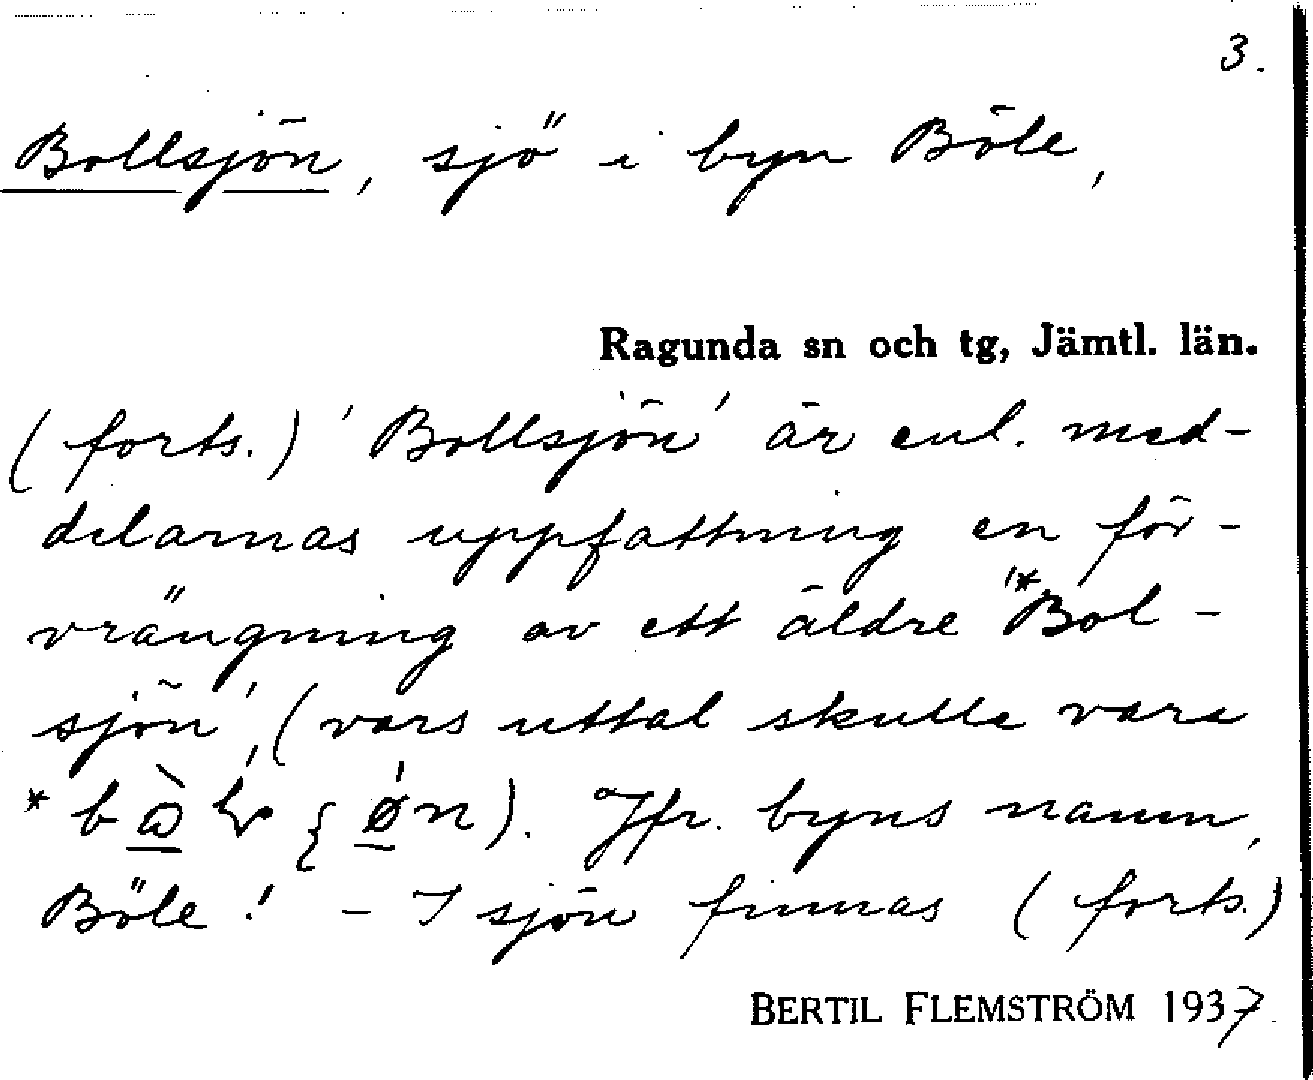 3.
Bollsjön, sjö i byn Böle,
Ragunda sn och tg, Jämtl. län.
(forts.) 'Bollsjön' är enl. med-
delarnas uppfattning en för-
vrängning av ett äldre '*Bol-
sjön', (vars uttal skulle vara
Jfr. byns namn,
Böle! - I sjön finnas (forts.)
BERTIL FLEMSTRÖM 1937